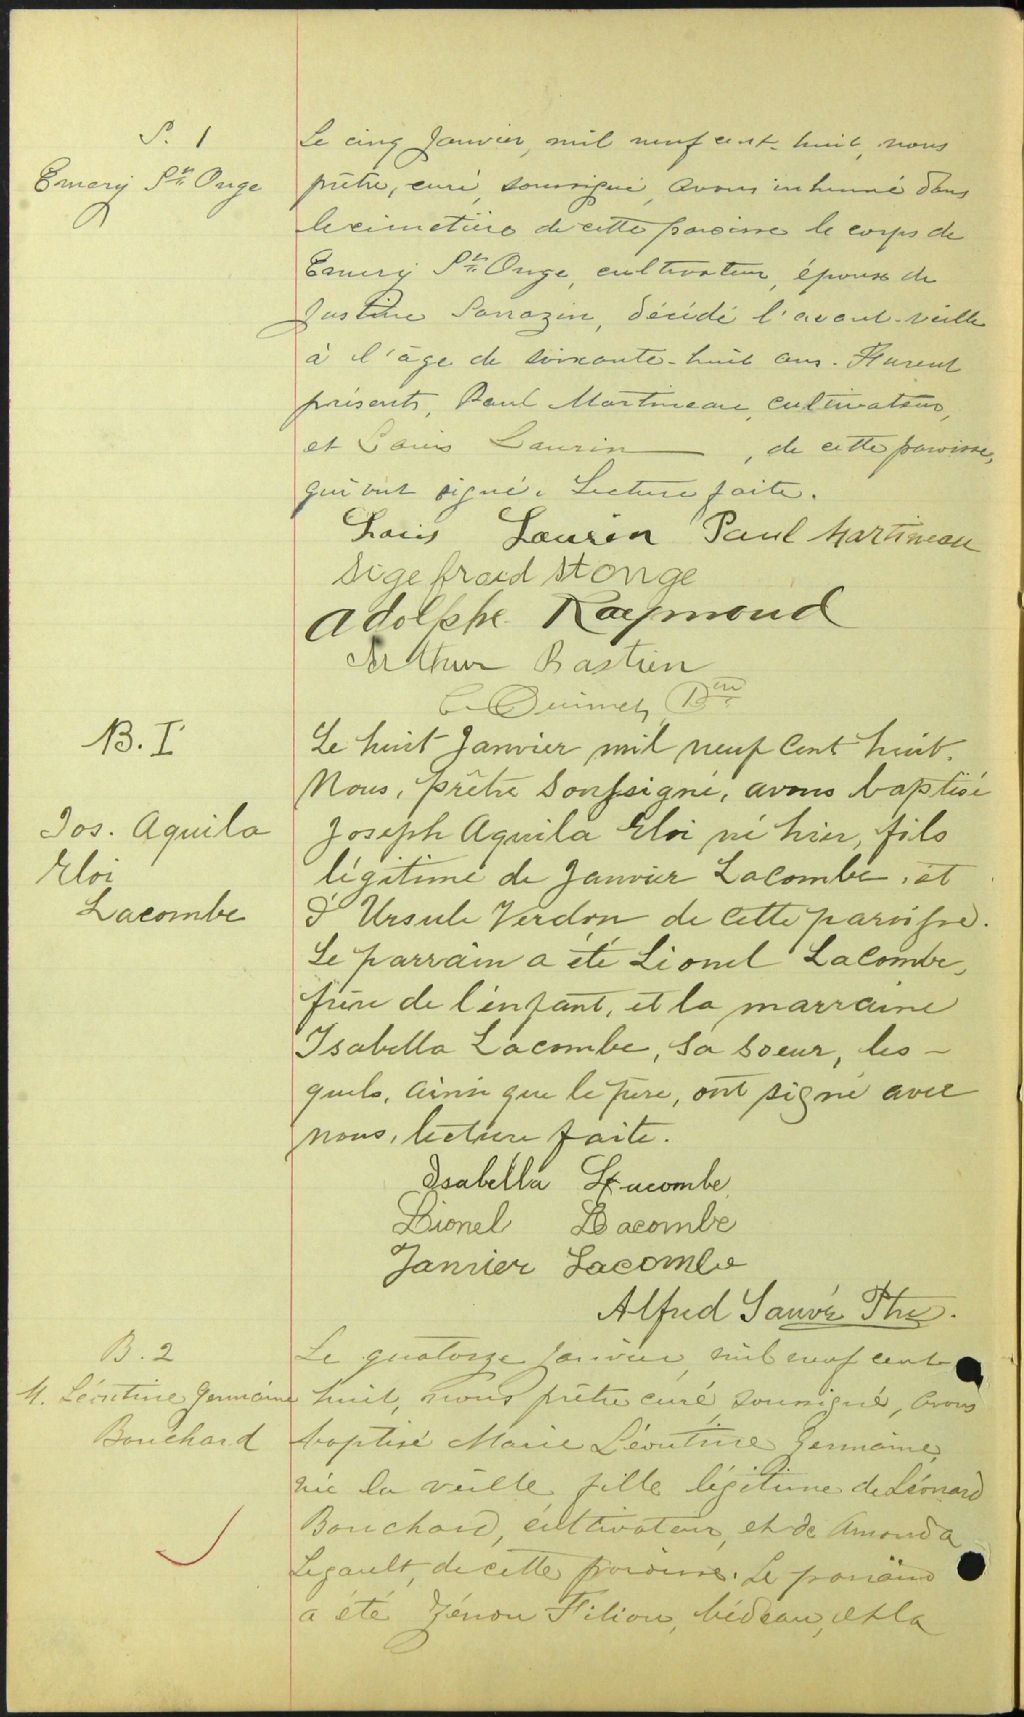 S. 1
Emery St Onge
Le cinq Janvier, mil neuf cent-huit, nous
prêtre, curé, soussigné, avons inhumé dans
le cimetière de cette paroisse le corps de
Emery St Onge, cultivateur, époux de
Justine Sarrazin, décédé l'avant-veille
à l'âge de soixante-huit ans. Furent
présents, Paul Martineau, cultivateur,
et Louis Laurin, de cette paroisse,
qui ont signé. Lecture faite.
Louis Laurin Paul Martineau
Sigefroid St Onge
Adolphe Raymond
Arthur Bastien
C. Ouimet,
B. 1
Jos. Aquila
Eloi
Lacombe
Le huit Janvier mil neuf cent huit.
Nous, prêtre soussigné, avons baptisé
Joseph Aquila Eloi né hier, fils
légitime de Janvier Lacombe, et
d'Ursule Verdon de cette paroisse.
Le parrain a été Lionel Lacombe,
frère de l'enfant, et la marraine
Isabella Lacombe, sa soeur, les-
quels, ainsi que le père, ont signé avec
nous, lecture faite.
Isabella Lacombe
Lionel Lacombe
Janvier Lacombe
Alfred Sauvé Ptre.
B. 2
M. Léontine Germaine
Bouchard
Le quatorze Janvier mil neuf cent
huit, nous prêtre curé soussigné, avons
baptisé Marie Léontine Germaine,
née la veille fille légitime de Léonard
Bouchard, cultivateur, et de Amanda
Legault, de cette paroisse. Le parrain
a été Zénon Filion, bédeau, et la